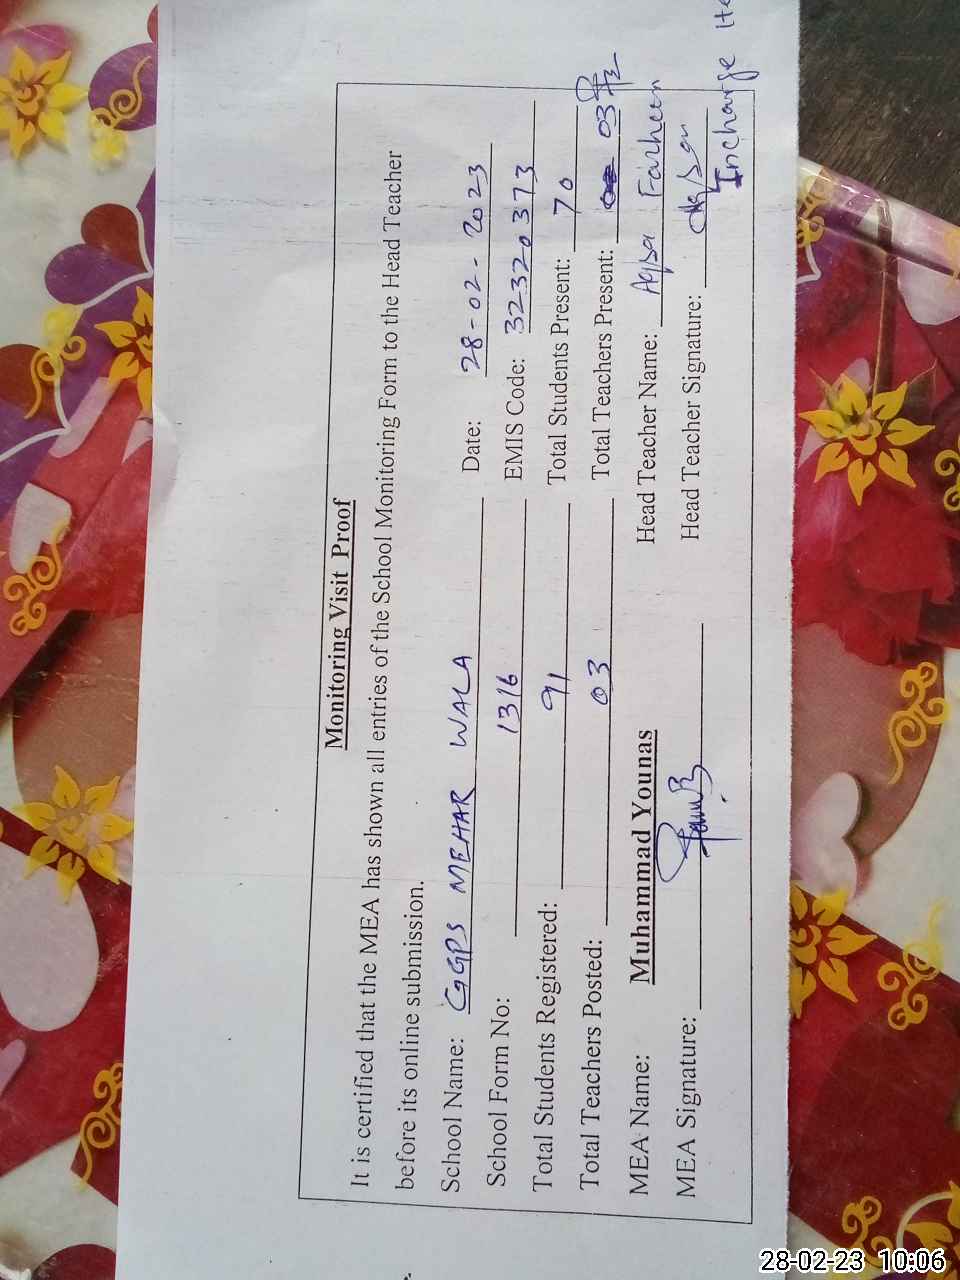 Monitoring Visit Proof
It is certified that the MEA has shown all entries of the School Monitoring Form to the Head Teacher
before its online submission.
School Name: GGPS MEHAR WALA Date: 28-02-2023
School Form No: 1316 EMIS Code: 32320373
Total Students Registered: 91 Total Students Present: 70
Total Teachers Posted: 03 Total Teachers Present: 03
MEA Name: Muhammad Younas Head Teacher Name: Aqsa Farheen
MEA Signature: Head Teacher Signature: Aqsa
Incharge
28-02-23 10:06